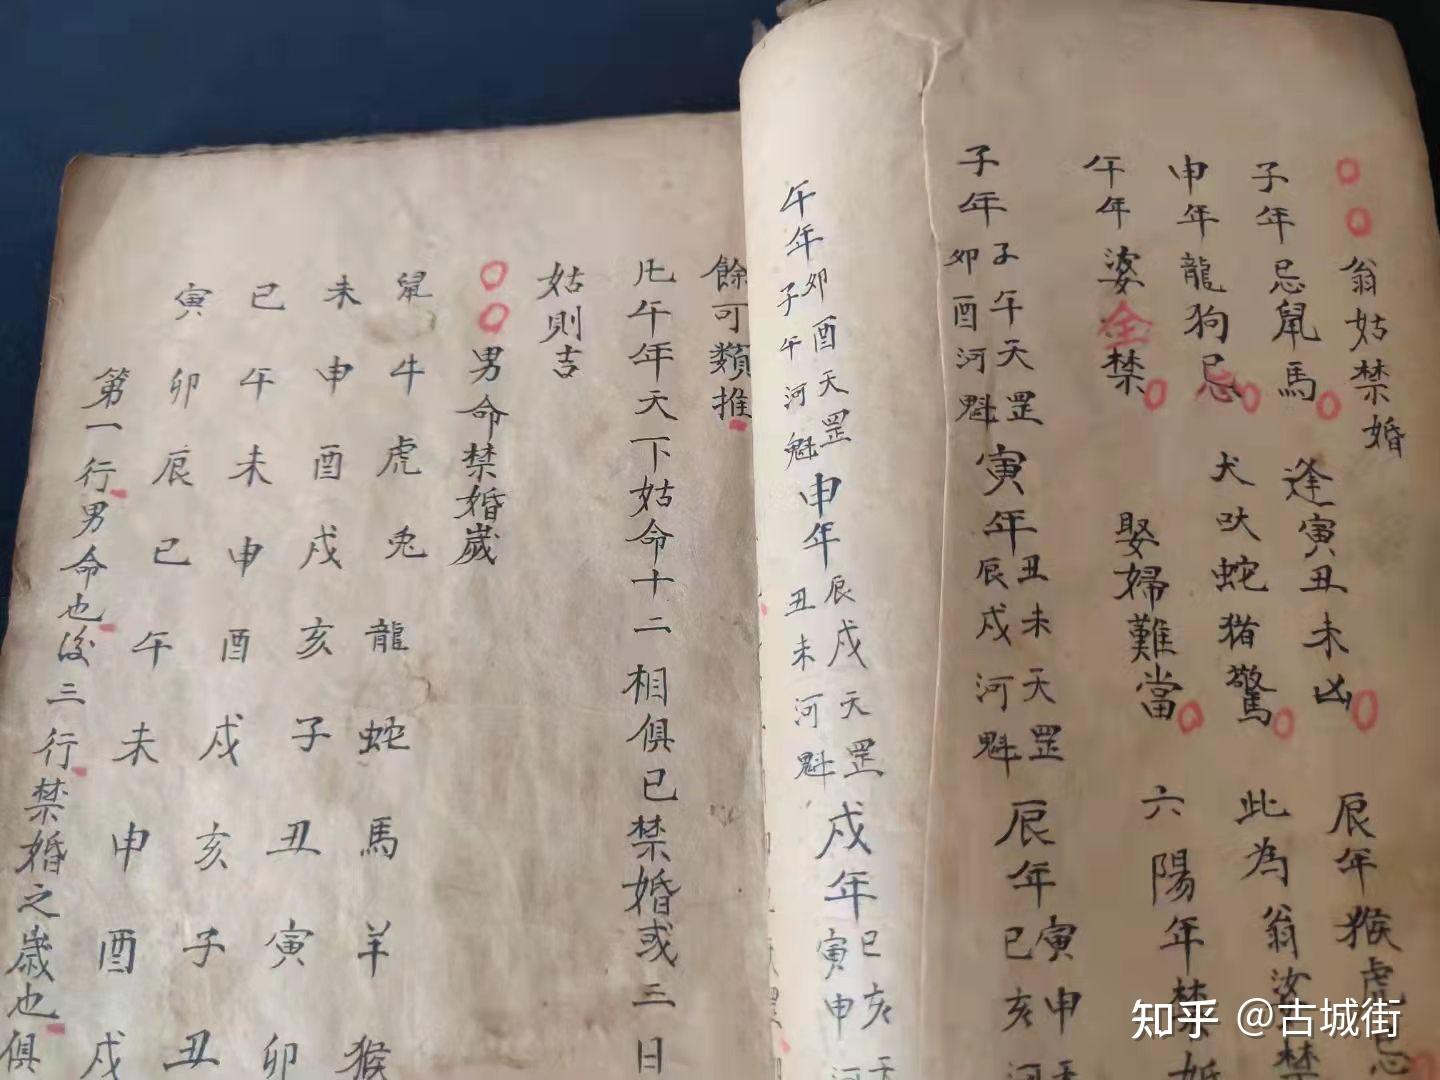 翁姑禁婚
子年忌鼠馬 逢寅丑未凶 辰年猴虎忌
申年龍狗忌 犬吠蛇猪驚 此為翁汝禁
午年婆全禁 娶婦難當 六陽年禁婚
子年 子午天罡 卯酉河魁 寅年 丑未天罡 辰戌河魁 辰年 寅申天 巳亥河
午年 卯酉天罡 子午河魁 申年 辰戌天罡 丑未河魁 戌年 巳亥天 寅申河
餘可類推
凡午年天下姑命十二相俱已禁婚或三日
姑則吉
男命禁婚歲
鼠牛虎兔龍蛇馬羊猴
未申酉戌亥子丑寅卯
巳午未申酉戌亥子丑
寅卯辰巳午未申酉戌
第一行男命也後三行禁婚之歲也俱
知乎 @古城街